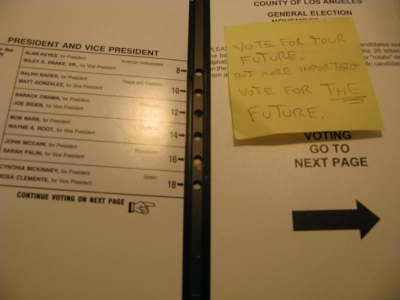 PRESIDENT AND VICE PRESIDENT
ALAN KEYES, for President
WILEY S. DRAKE, SR., for Vice President
American Independent
8
RALPH NADER, for President
MATT GONZALEZ, for Vice President
Peace and Freedom
10
BARACK OBAMA, for President
JOE BIDEN, for Vice President
12
BOB BARR, for President
WAYNE A. ROOT, for Vice President
14
JOHN MCCAIN, for President
SARAH PALIN, for Vice President
16
CYNTHIA MCKINNEY, for President
ROSA CLEMENTE, for Vice President
Green
18
CONTINUE VOTING ON NEXT PAGE
COUNTY OF LOS ANGELES
GENERAL ELECTION
VOTE FOR YOUR
FUTURE.
BUT MORE IMPORTANT
VOTE FOR THE
FUTURE.
VOTING
GO TO
NEXT PAGE